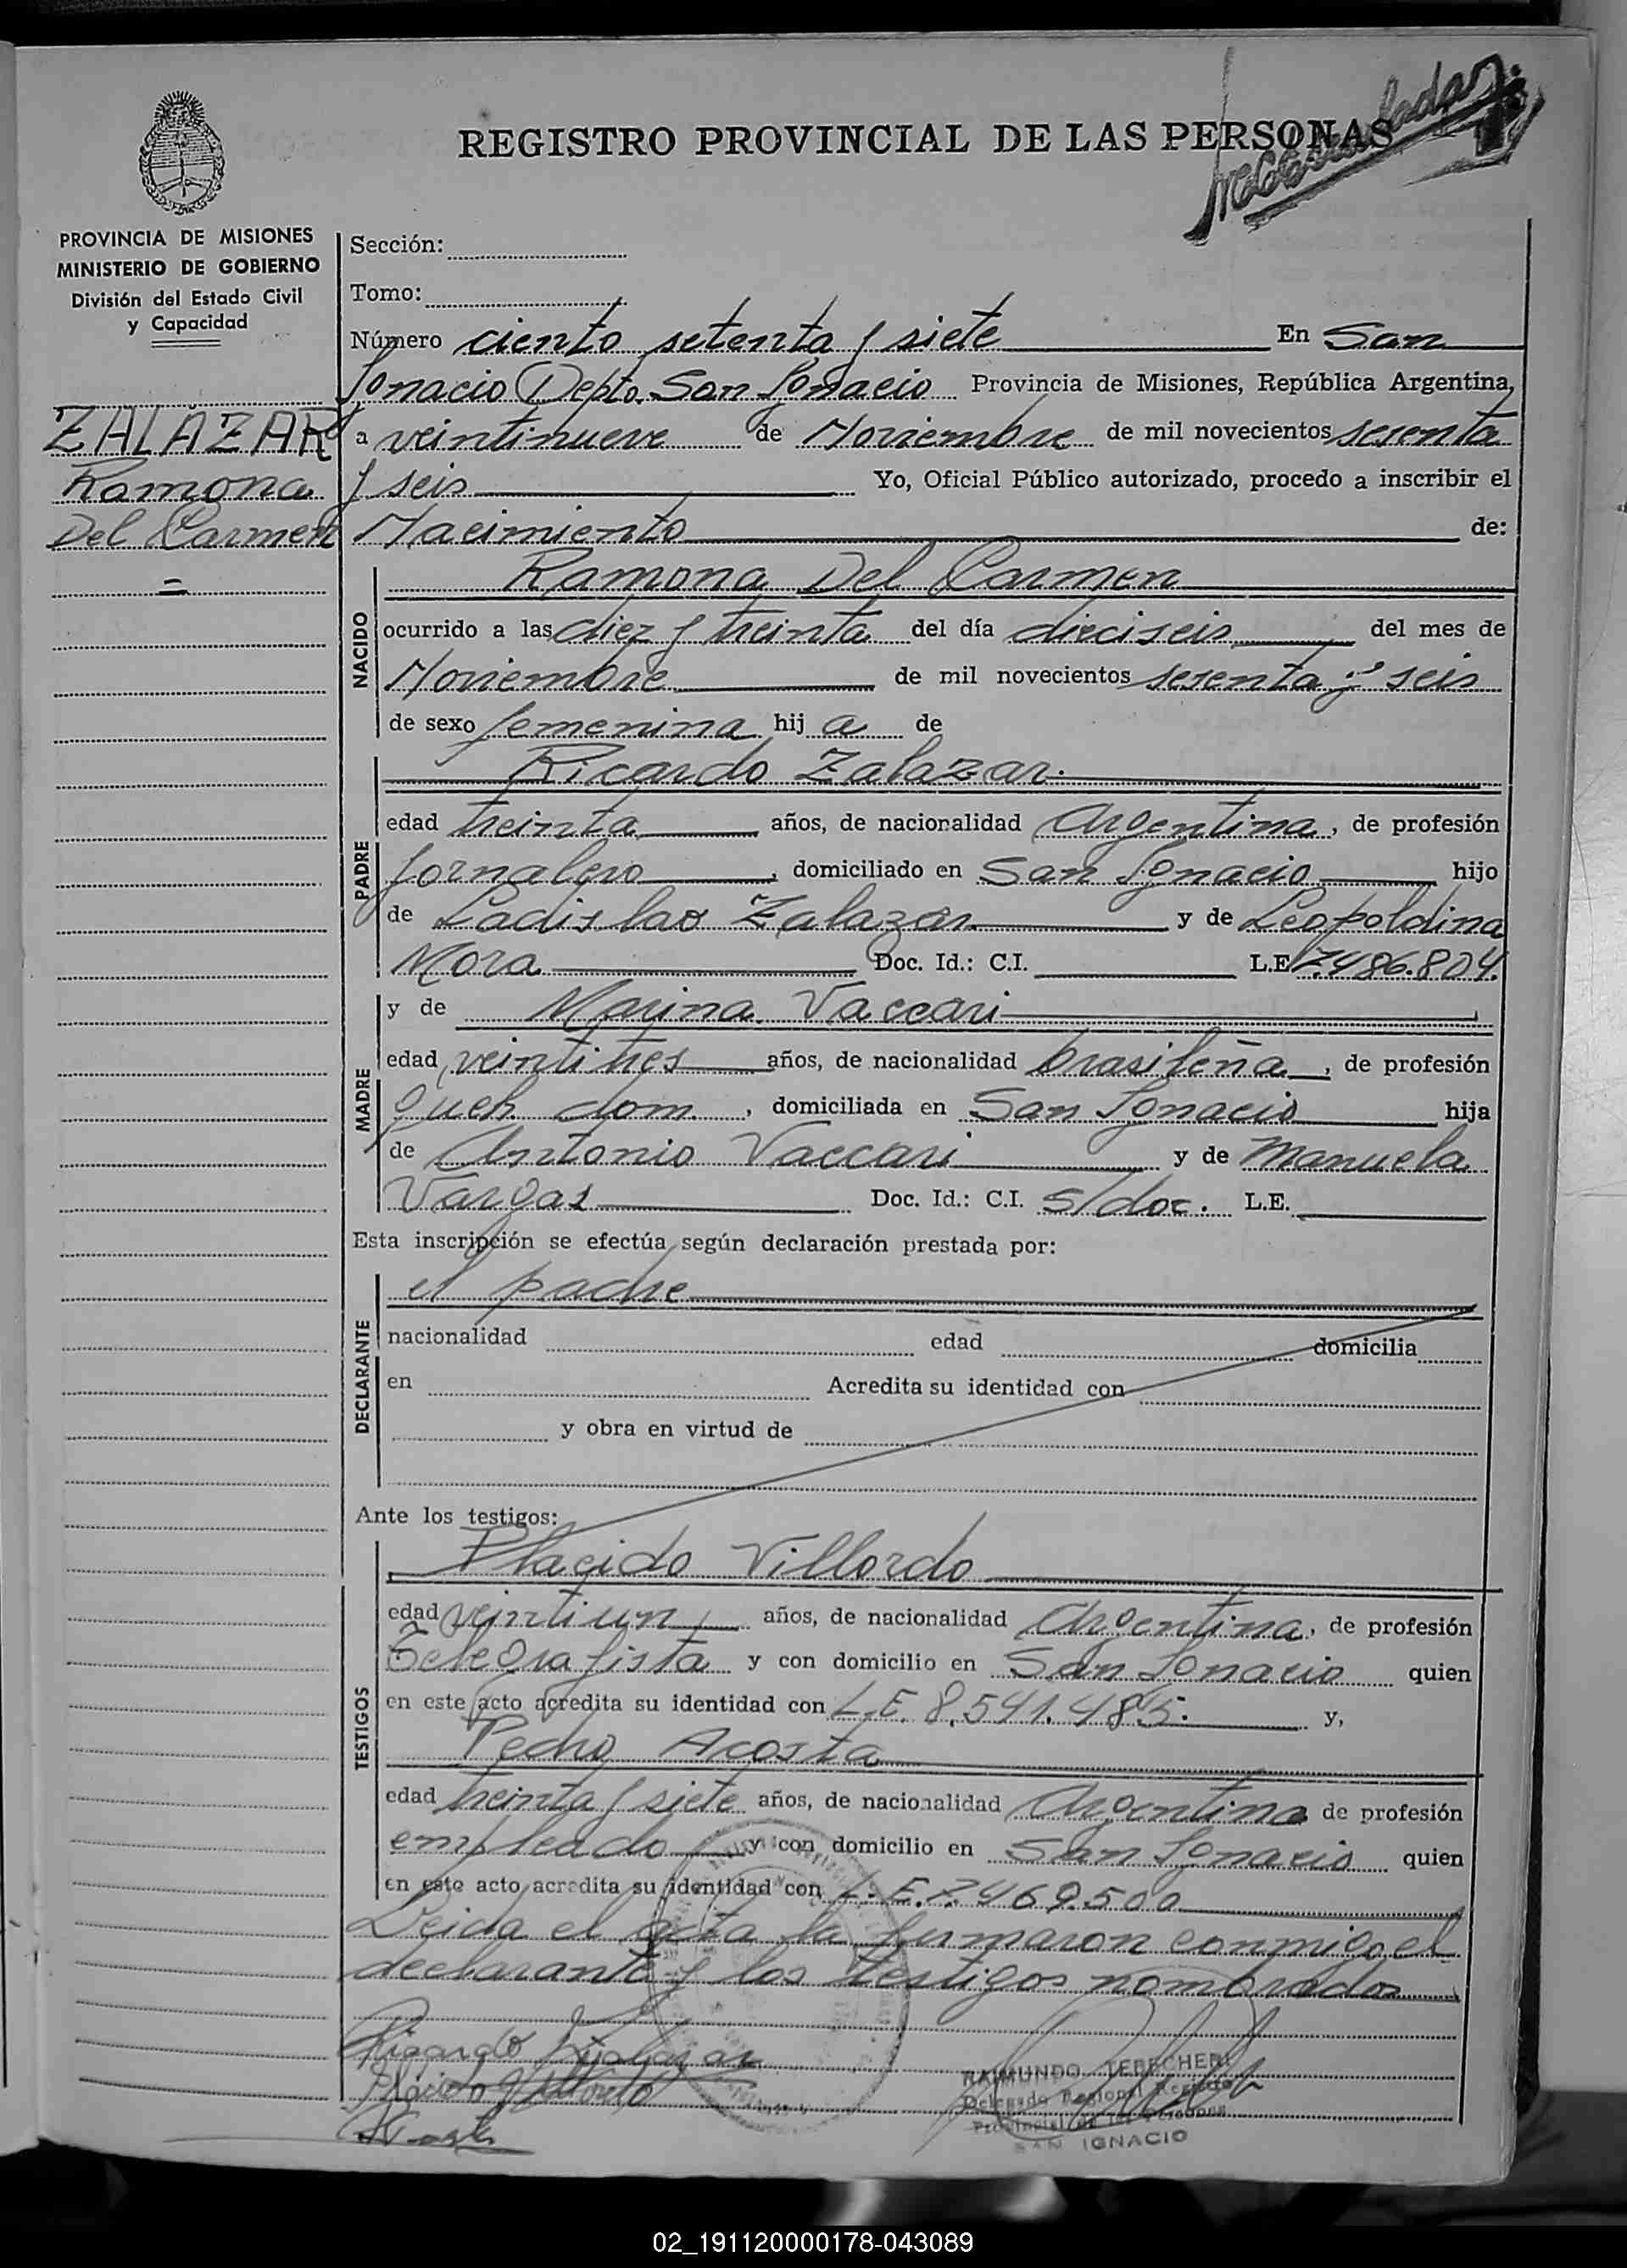 REGISTRO PROVINCIAL DE LAS PERSONAS
PROVINCIA DE MISIONES
MINISTERIO DE GOBIERNO
División del Estado Civil
y Capacidad
ZALAZAR
Ramona
Del Carmen
=
Sección:
Tomo:
Número ciento setenta y siete En San
Ignacio Depto. San Ignacio Provincia de Misiones, República Argentina,
a veintinueve de Noviembre de mil novecientos sesenta
y seis Yo, Oficial Público autorizado, procedo a inscribir el
Nacimiento de:
NACIDO
Ramona Del Carmen
ocurrido a las diez y treinta del día dieciseis del mes de
Noviembre de mil novecientos sesenta y seis
de sexo femenina hij a de
PADRE
Ricardo Zalazar.
edad treinta años, de nacionalidad Argentina, de profesión
Jornalero, domiciliado en San Ignacio hijo
de Ladislao Zalazar y de Leopoldina
Mora Doc. Id.: C.I. L.E 7.486.804.
MADRE
y de Marina Vaccari
edad veintitres años, de nacionalidad brasileña, de profesión
queh dom., domiciliada en San Ignacio hija
de Antonio Vaccari y de Manuela
Vargas Doc. Id.: C.I. S/doc. L.E.
Esta inscripción se efectúa según declaración prestada por:
DECLARANTE
el padre
nacionalidad edad domicilia
en Acredita su identidad con
y obra en virtud de
Ante los testigos:
TESTIGOS
Placido Villordo
edad veintiun años, de nacionalidad Argentina, de profesión
Telegrafista y con domicilio en San Ignacio quien
en este acto acredita su identidad con L.E. 8.541.485. y,
Pedro Acosta
edad treinta y siete años, de nacionalidad Argentina de profesión
empleado y con domicilio en San Ignacio quien
en este acto acredita su identidad con L.E. 7.469.500
Leida el acta la firmaron conmigo el
declarante y los testigos nombrados
Ricardo Zalazar
Placido Villordo
RAIMUNDO TEBECHERI
Delegado Regional Registro
Provincial de las Personas
SAN IGNACIO
02_191120000178-043089